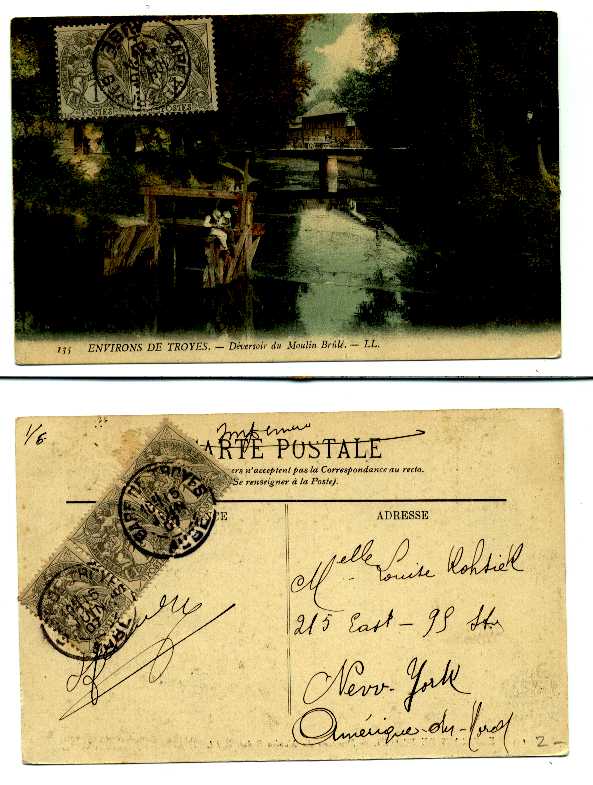 135 ENVIRONS DE TROYES. — Déversoir du Moulin Brûlé. — LL.
1/6
CARTE POSTALE
ers n'acceptent pas la Correspondance au recto.
Se renseigner à la Poste).
GARE DE TROYES
CE
ADRESSE
Melle Louise
215 East - 95 St.
New-York
Amérique-du-Nord
2-